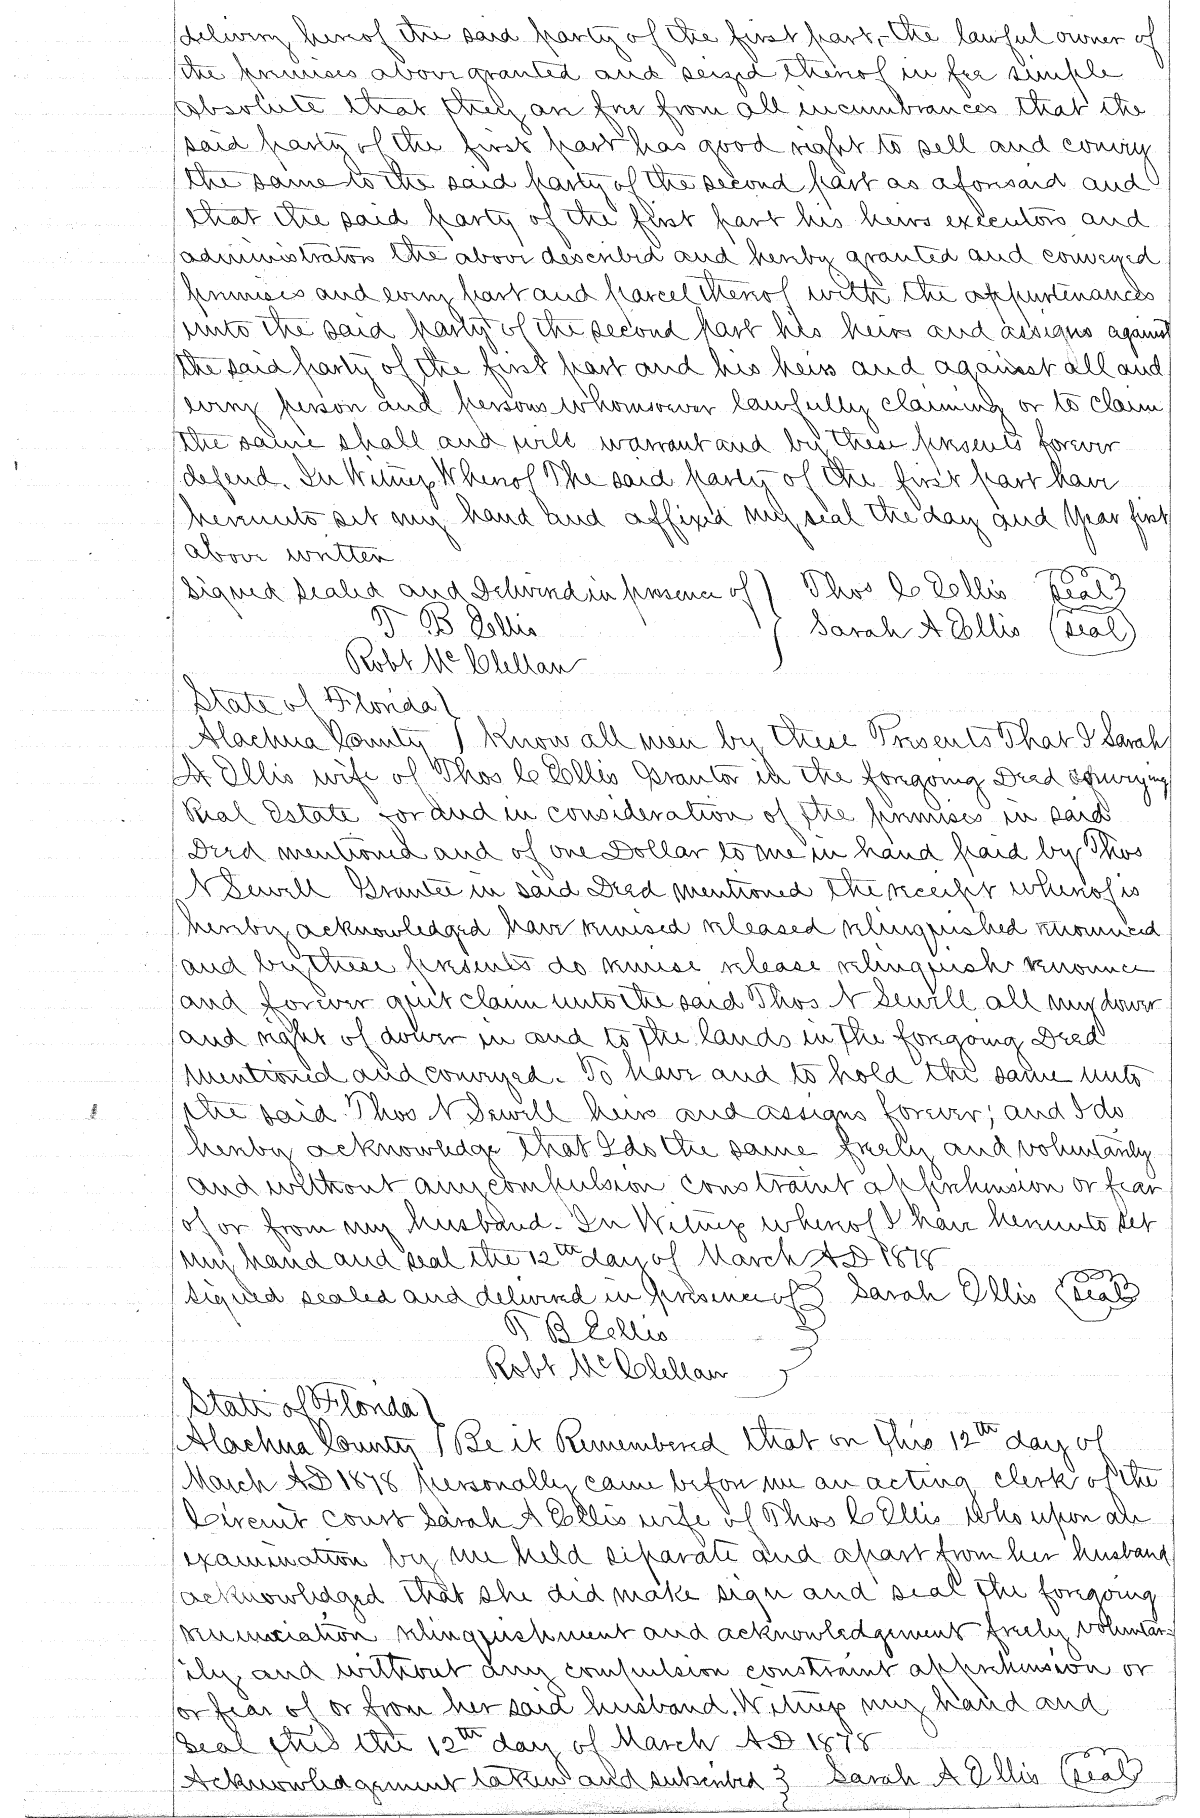 delivery hereof the said party of the first part, the lawful owner of
the premises above granted and seized thereof in fee simple
absolute that they are free from all incumbrances that the
said party of the first part has good right to sell and convey
the same to the said party of the second part as aforesaid and
that the said party of the first part his heirs executors and
administrators the above described and hereby granted and conveyed
premises and every part and parcel thereof with the appurtenances
unto the said party of the second part his heirs and assigns against
the said party of the first part and his heirs and against all and
every person and persons whomsoever lawfully claiming or to claim
the same shall and will warrant and by these presents forever
defend. In Witness Whereof The said party of the first part have
hereunto set my hand and affixed my seal the day and Year first
above written
Signed Sealed and Delivered in presence of } Thos C Ellis (Seal)
T B Ellis } Sarah A Ellis (Seal)
Robt McClellan
State of Florida }
Alachua County } Know all men by these Presents That I Sarah
A Ellis wife of Thos C Ellis Grantor in the foregoing Deed conveying
Real Estate for and in consideration of the premises in said
Deed mentioned and of one Dollar to me in hand paid by Thos
N Sewell Grantee in said Deed mentioned the receipt whereof is
hereby acknowledged have remised released relinquished renounced
and by these presents do remise release relinquish renounce
and forever quit claim unto the said Thos N Sewell all my dower
and right of dower in and to the lands in the foregoing Deed
mentioned and conveyed. To have and to hold the same unto
the said Thos N Sewell heirs and assigns forever; and I do
hereby acknowledge that I do the same freely and voluntarily
and without any compulsion constraint apprehension or fear
of or from my husband. In Witness whereof I have hereunto set
my hand and seal the 12th day of March AD 1878
Signed sealed and delivered in presence of } Sarah Ellis (Seal)
T B Ellis
Robt McClellan
State of Florida }
Alachua County } Be it Remembered that on this 12th day of
March AD 1878 personally came before me an acting clerk of the
Circuit Court Sarah A Ellis wife of Thos C Ellis who upon an
examination by me held separate and apart from her husband
acknowledged that she did make sign and seal the foregoing
renunciation relinquishment and acknowledgement freely voluntar-
ily and without any compulsion constraint apprehension or
or fear of or from her said husband. Witness my hand and
Seal this the 12th day of March AD 1878
Acknowledgement taken and subscribed } Sarah A Ellis (Seal)